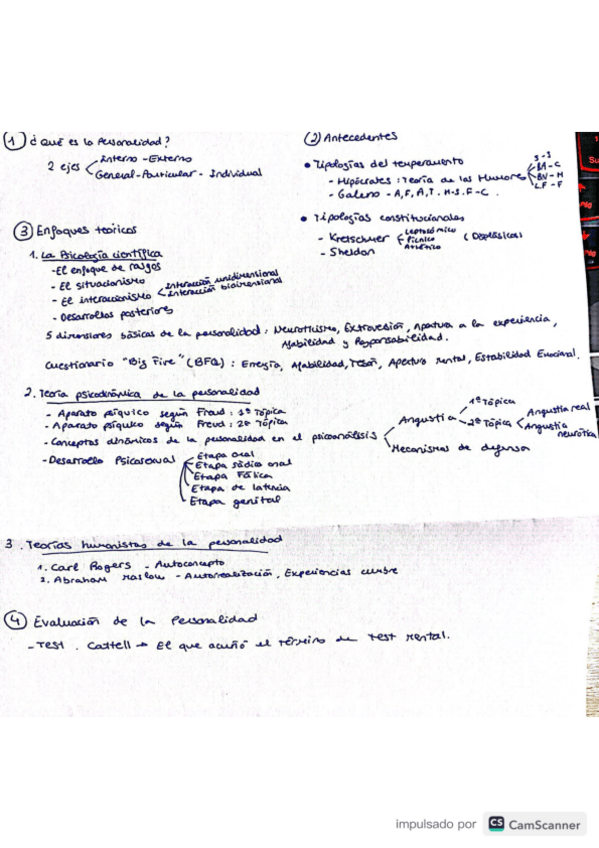 1 ¿Qué es la Personalidad?
2 ejes
Interno - Externo
General - Particular - Individual
2 Antecedentes
• Tipologías del temperamento
- Hipócrates: Teoría de los Humores
S-S
BA-C
BN-M
LF-F
- Galeno - A, F, A, T. H-S. F-C.
• Tipologías constitucionales
- Kretschmer
Leptosómico
Pícnico
Atlético
(Displásicos)
- Sheldon
3 Enfoques teóricos
1. La Psicología científica
- El enfoque de rasgos
- El situacionismo
- El interaccionismo
Interacción unidireccional
Interacción bidireccional
- Desarrollos posteriores
5 dimensiones básicas de la personalidad: Neuroticismo, Extroversión, Apertura a la experiencia,
Afabilidad y Responsabilidad.
Cuestionario "Big Five" (BFQ): Energía, Afabilidad, Tesón, Apertura Mental, Estabilidad Emocional.
2. Teoría psicodinámica de la personalidad
- Aparato psíquico según Freud: 1ª Tópica
- Aparato psíquico según Freud: 2ª Tópica
- Conceptos dinámicos de la personalidad en el psicoanálisis
Angustia
1ª Tópica
2ª Tópica
Angustia real
Angustia neurótica
Mecanismos de defensa
- Desarrollo Psicosexual
Etapa oral
Etapa sádico anal
Etapa Fálica
Etapa de latencia
Etapa genital
3. Teorías humanistas de la personalidad
1. Carl Rogers - Autoconcepto
2. Abraham Maslow - Autorrealización, Experiencias cumbre
4 Evaluación de la Personalidad
- Test. Cattell → El que acuñó el término de test mental.
impulsado por CS CamScanner